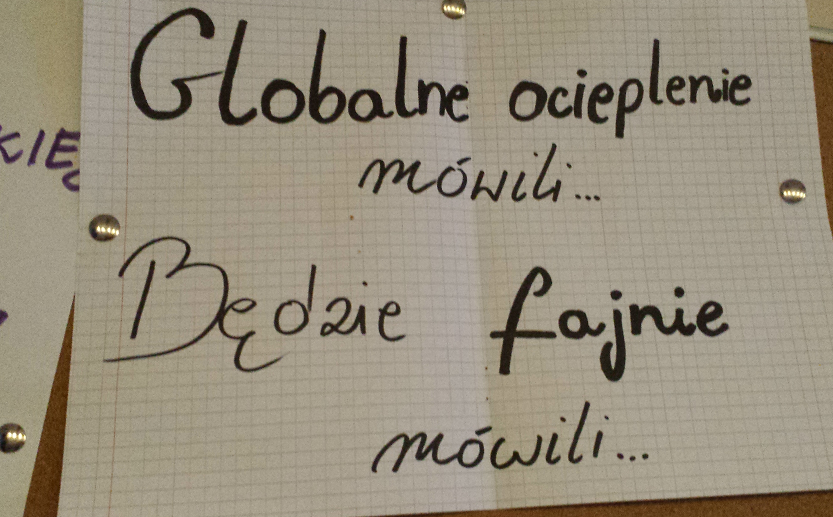 Globalne ocieplenie
mówili...
Będzie fajnie
mówili...
KIE